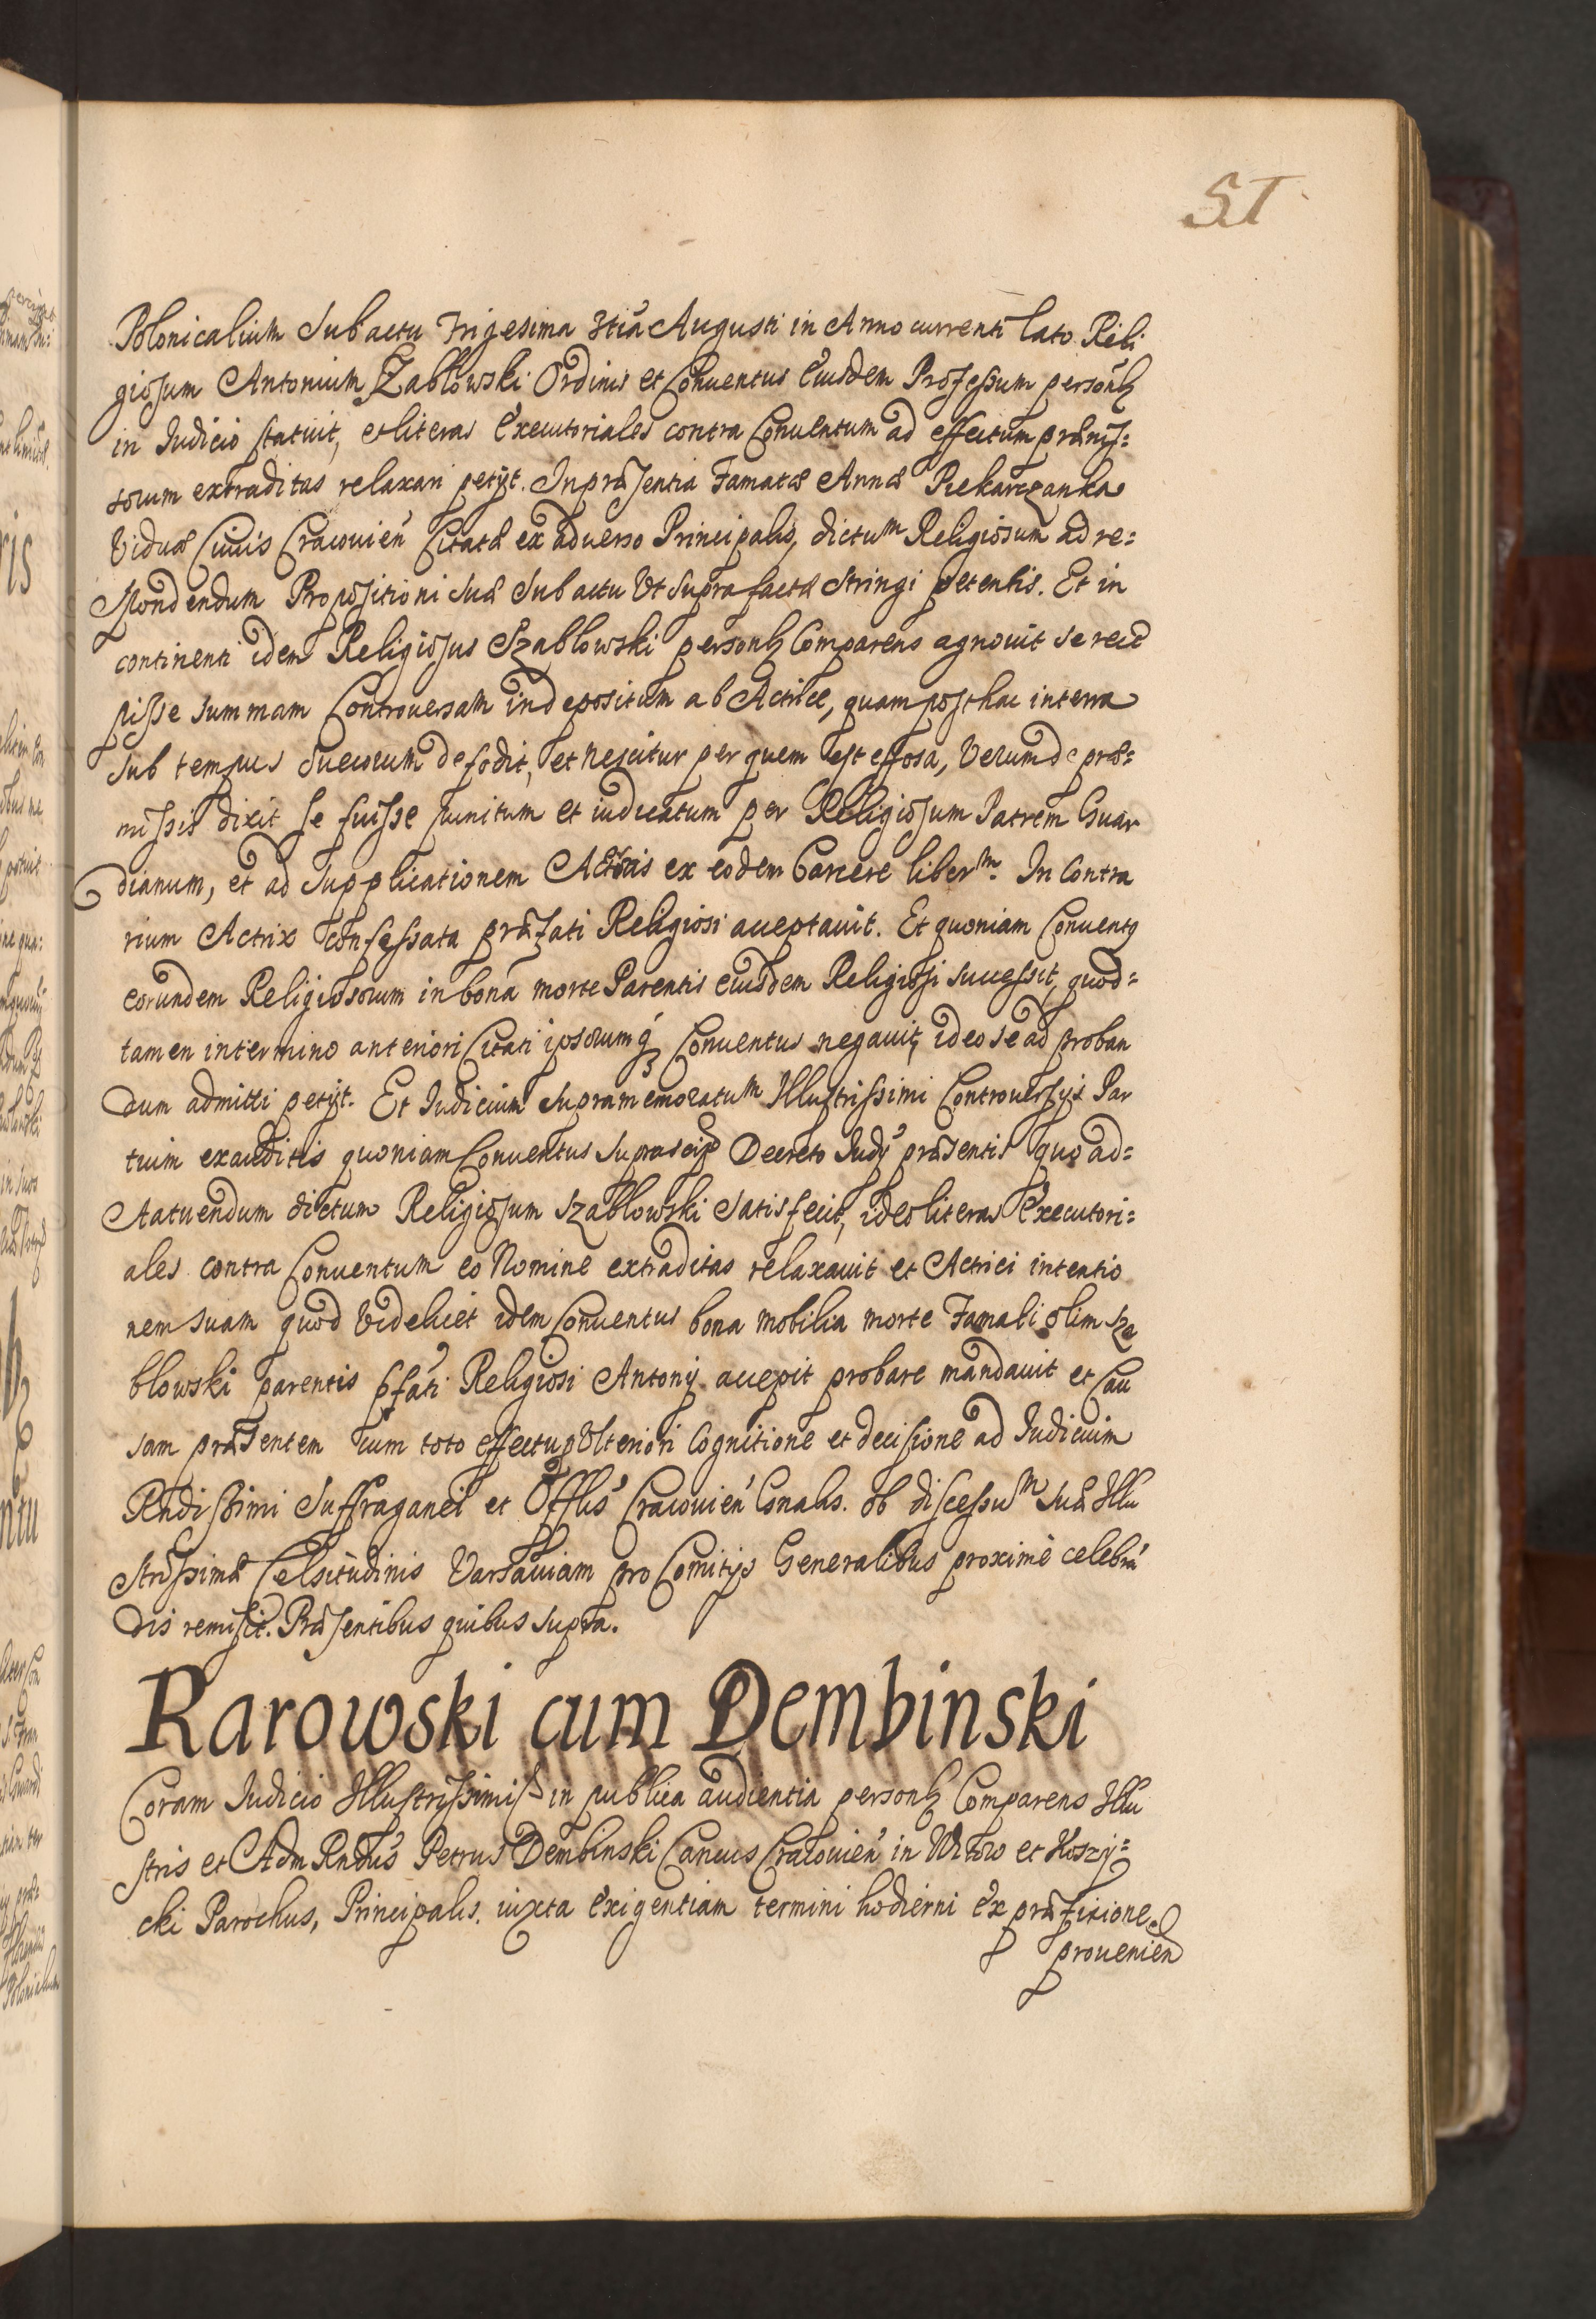 51
Polonicalium Sub actu Trigesima 3tia Augusti in Anno currenti lato Reli
giosum Antonium Szablowski Ordinis et Conuentus Eiusdem Professum personlr
in Judicio statuit, et literas Executoriales contra Conuentum ad effectum præmis=
sorum extraditas relaxari petijt. In præsentia Famatæ Annæ Piekarczanka
Viduæ Ciuis Cracouien Citatæ ex aduerso Principalis, dictum Religiosum ad re=
spondendum Propositioni suæ Sub actu Vt supra factæ Stringi petentis. Et in
continenti idem Religiosus Szablowski personlr Comparens agnouit se rece
pisse summam Controuersam in depositum ab Actrice, quam post hac in terra
sub tempus Suecorum defodit, et nescitur per quem est effosa, Verum de præ=
missis dixit se fuisse punitum et iudicatum per Religiosum Patrem Guar
dianum, et ad Supplicationem Actricis ex eodem Carcere liberm. In Contra
rium Actrix confessata præfati Religiosi acceptauit. Et quoniam Conuentus
eorundem Religiosorum in bona morte Parentis eiusdem Religiosi successit, quod=
tamen in termino anteriori Citati ipsorumq Conuentus negauit, ideo se ad proban
dum admitti petijt. Et Judicium Supramemoratum Illustrissimi Controuersijs Par
tium exauditis quoniam Conuentus Suprascrip Decreto Judij præsentis quo ad=
statuendum dictum Religiosum Szablowski satisfecit, ideo literas Executori=
ales contra Conuentum eo Nomine extraditas relaxauit et Actrici intentio
nem suam quod Videlicet idem Conuentus bona mobilia morte Famati olim Sza
blowski parentis pfati Religiosi Antonij accepit probare mandauit et Cau
sam præsentem cum toto effectu p Vlteriori Cognitione et decisione ad Judicium
Rndissimi Suffraganei et Offlis Cracouien Gonalis. ob discessum suæ Illu
strissimæ Celsitudinis Varsauiam pro Comitijs Generalibus proxime celebran
dis remisit. Præsentibus quibus supra.
Rarowski cum Dembinski
Coram Judicio Illustrissimi in publica audientia personlr Comparens Illu
stris et Adm Rndus Petrus Dembinski Cancus Cracouien in Witow et Koszy=
cki Parochus, Principalis. iuxta exigentiam termini hodierni ex præfixione
prouenien